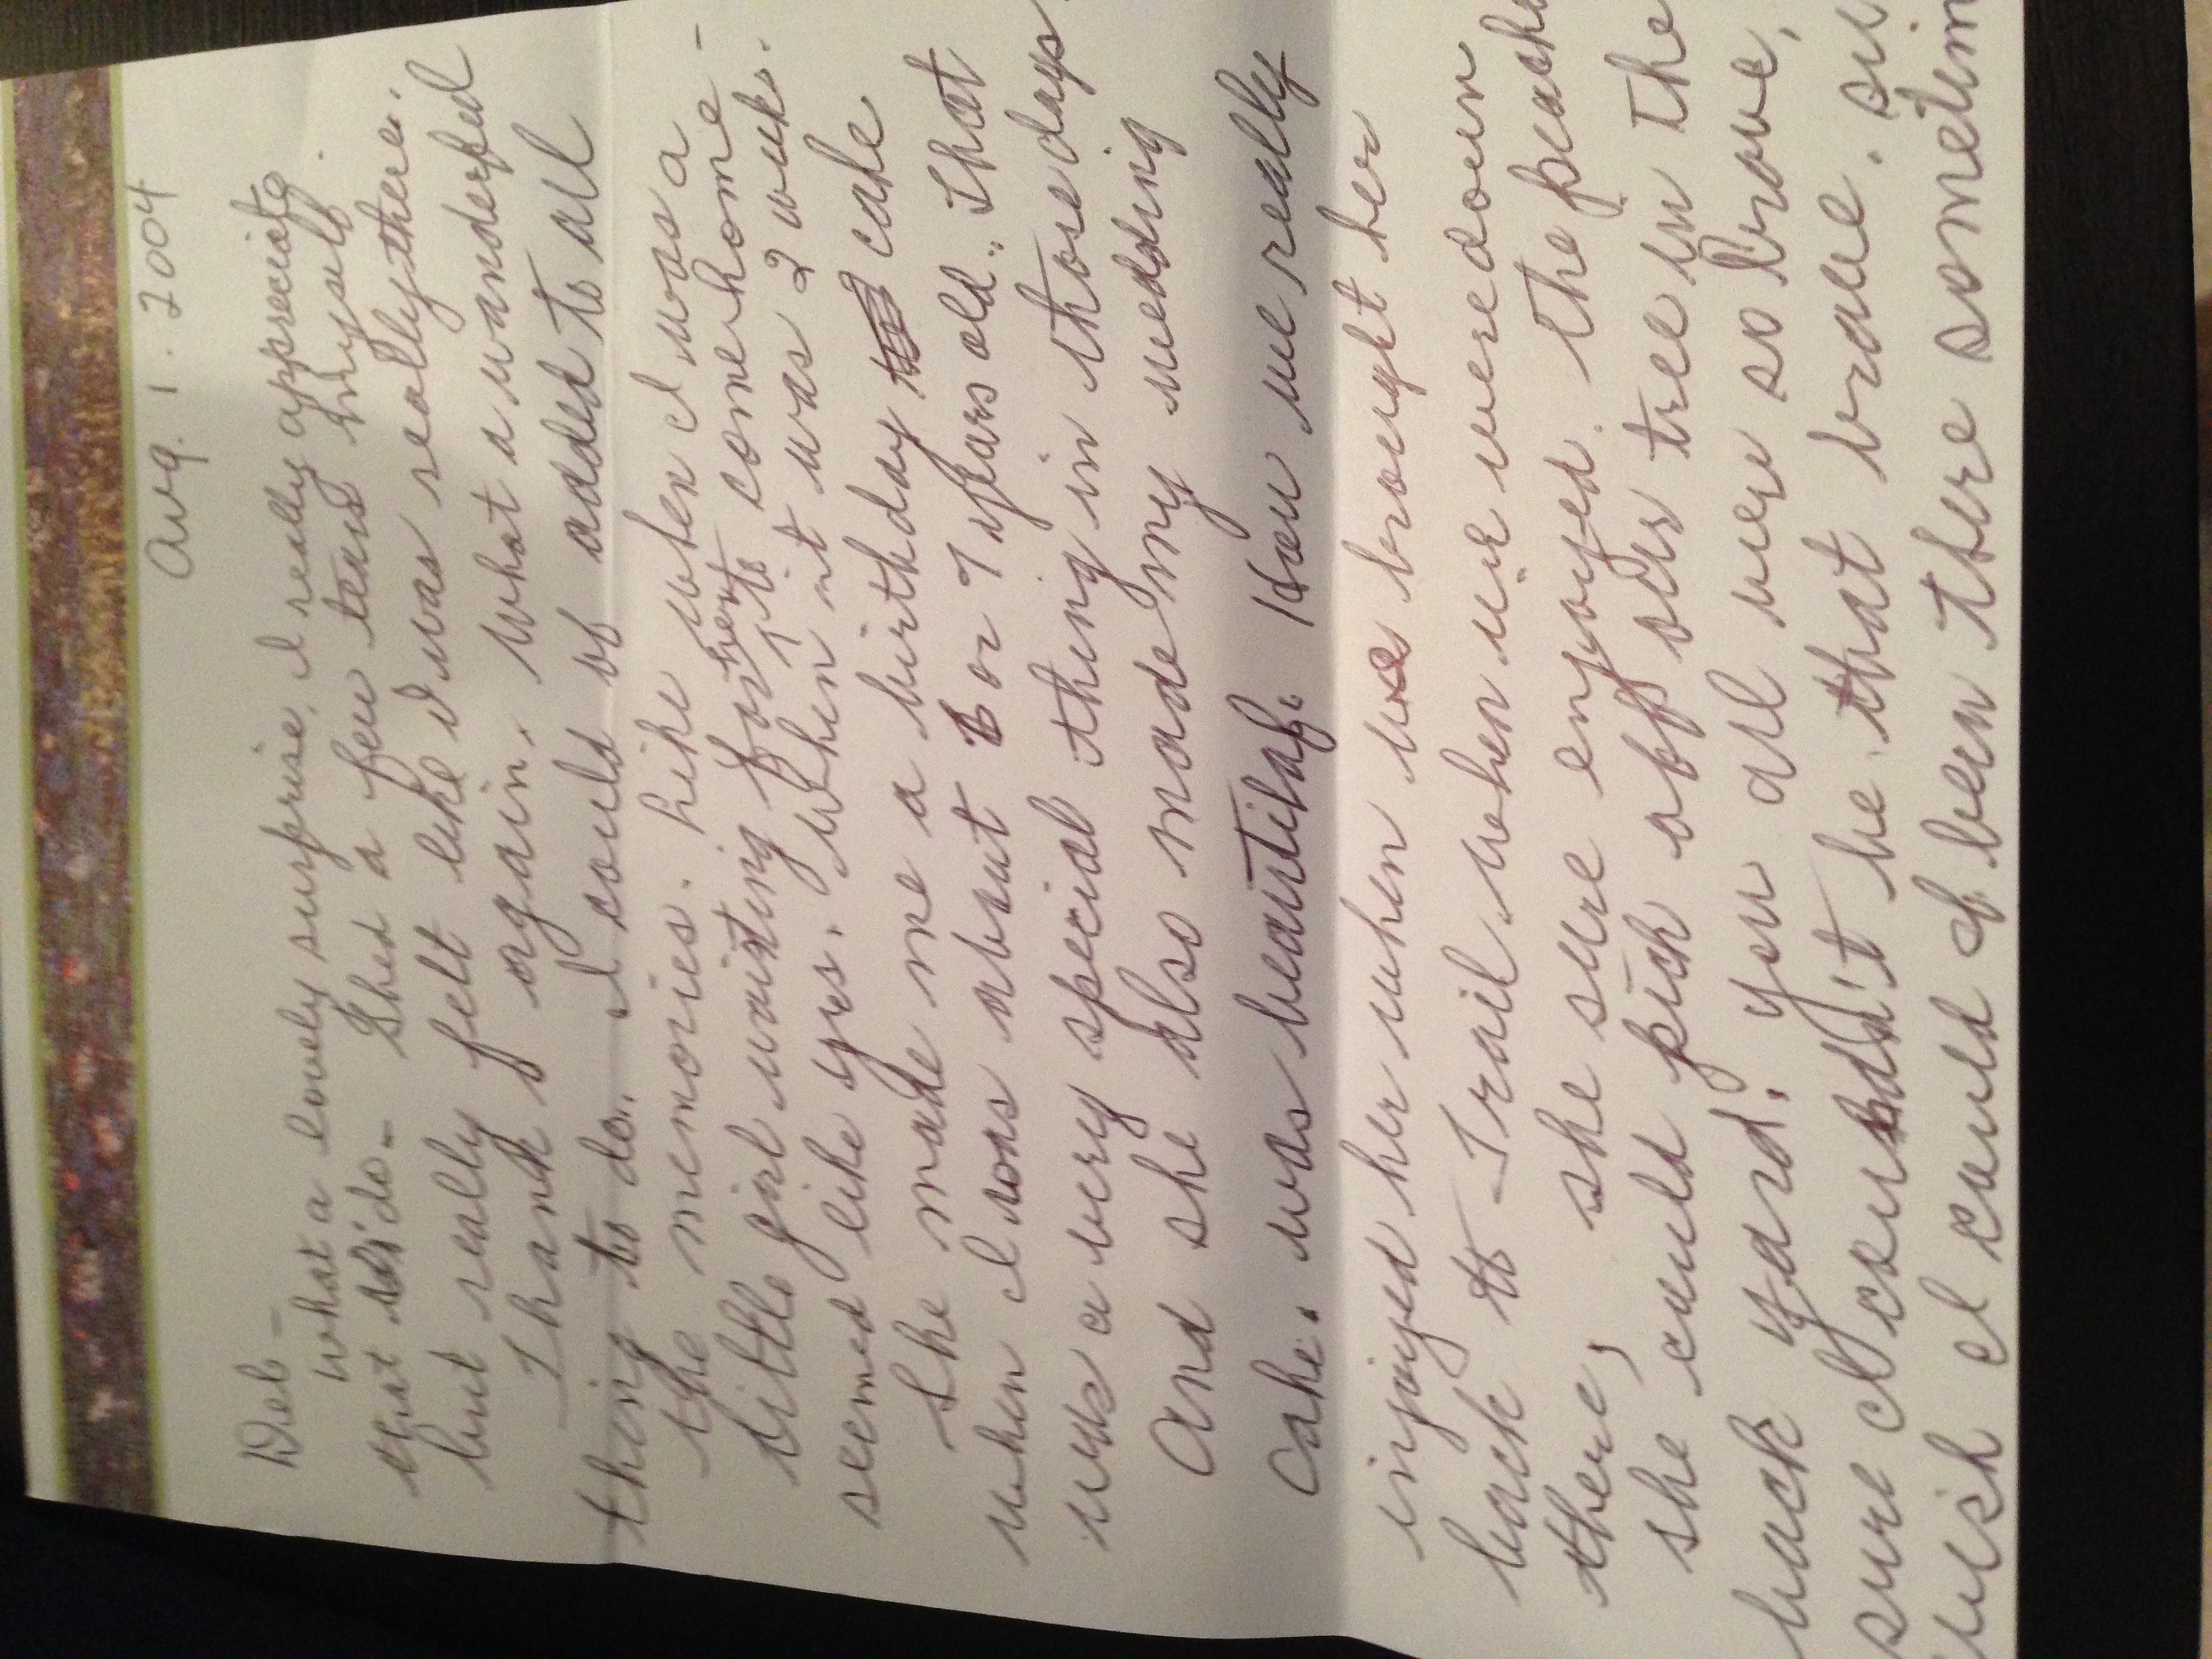 Aug. 1. 2004
Deb -
what a lovely surprise, I really appreciate
Shed a few tears myself.
but really felt like I was really there.
Thank again. What a wonderful
thing to do. I could of added to all
the memories. Like when I was a
little girl waiting for to come home -
seemed like yrs. when it was 2 wks.
She made me a birthday cake
when I was about 6 or 7 years old. That
was a very special thing in those days.
And she also made my wedding
Cake. was beautiful. How we really
injoyed her when we brought her
back to Trail when we were down
there, she sure enjoyed. the
she could pick off our tree in the
back yard. you all were so brave,
sure I couldn't be that brave.
wish I could of been there